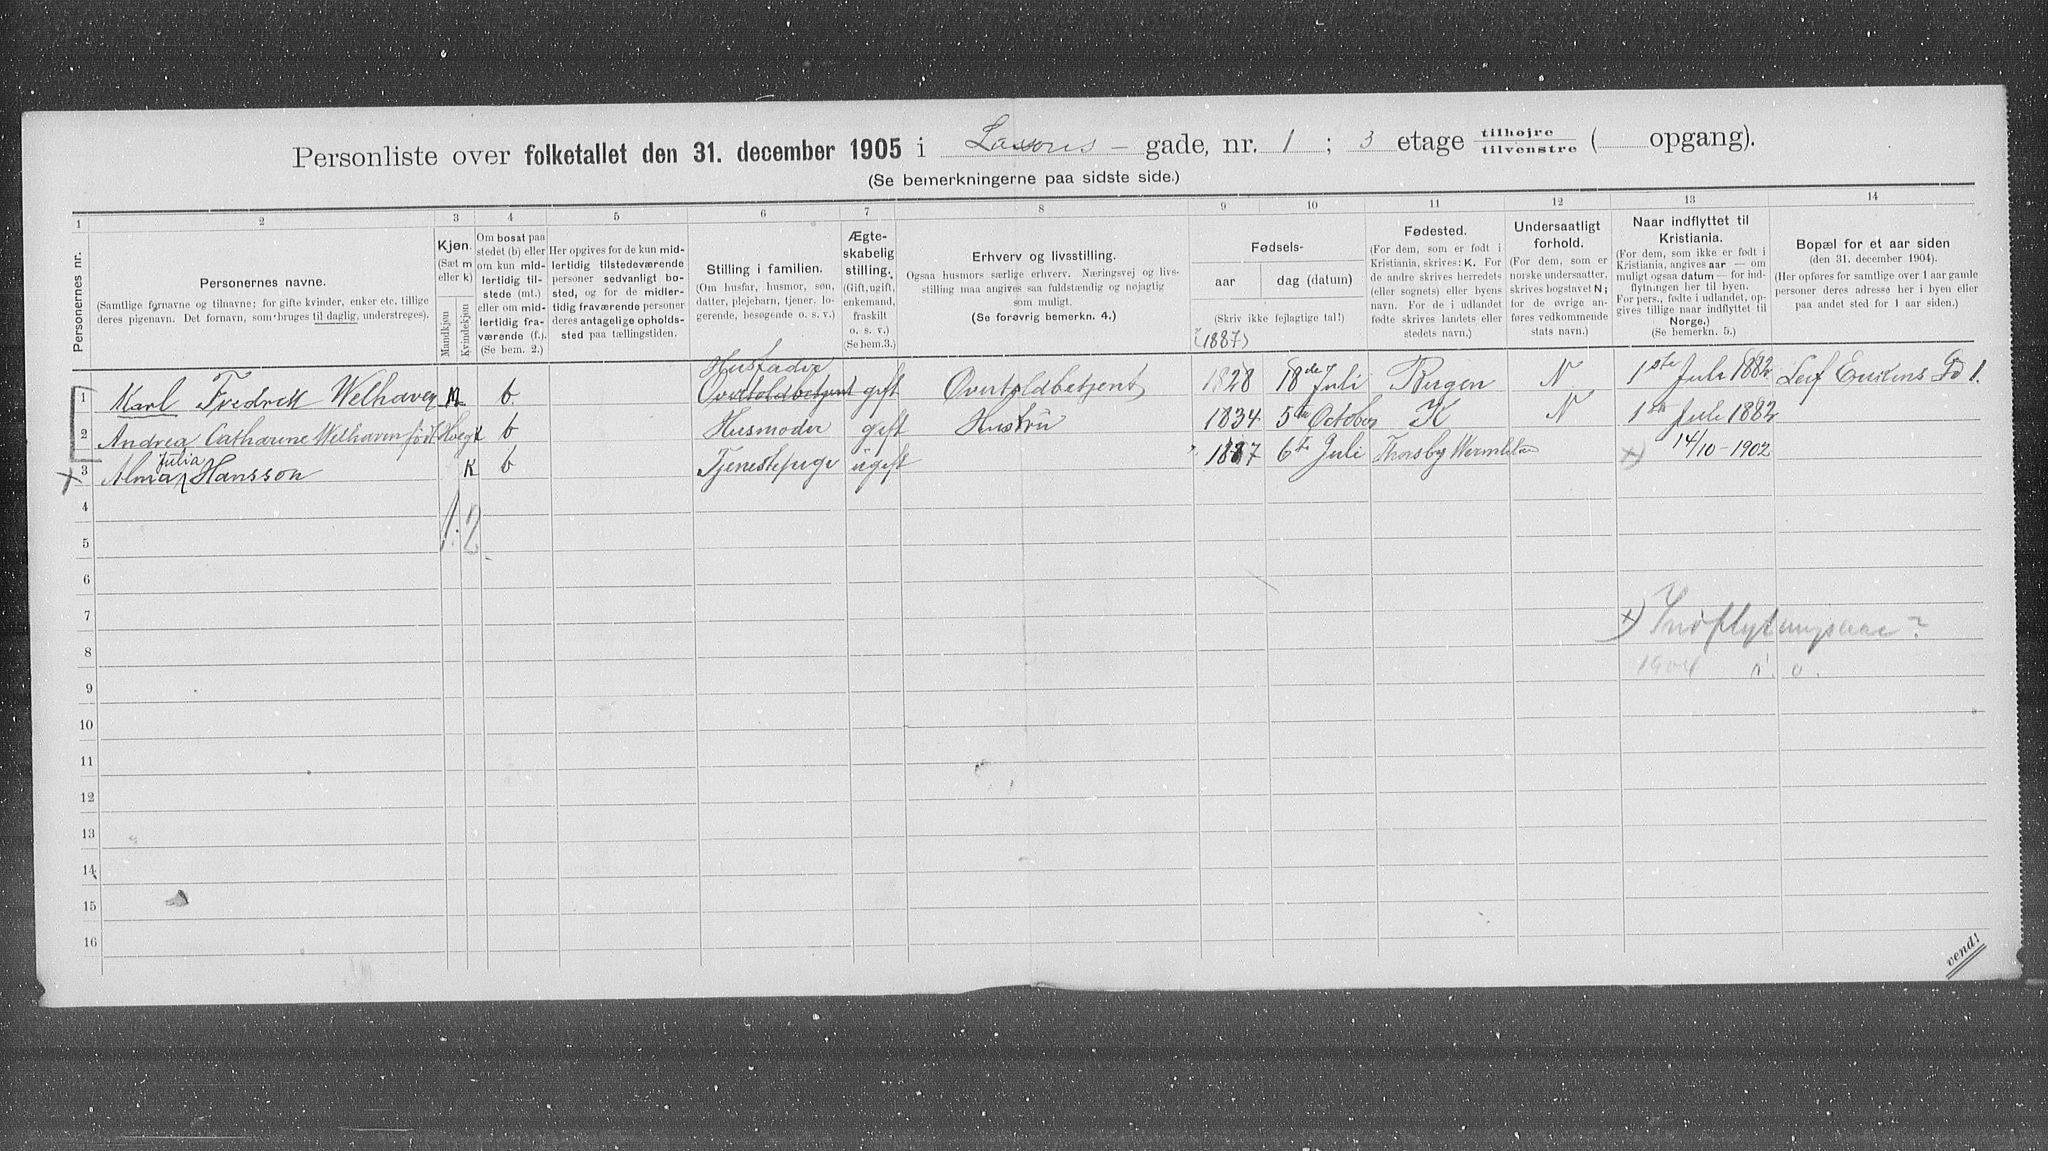 Personliste over folketallet den 31. december 1905 i Lassons - gade, nr. 1 ; 3 etage tilhøjre tilvenstre ( opgang).
(Se bemerkningerne paa sidste side.)
1 2 3 4 5 6 7 8 9 10 11 12 13 14
Personernes nr.
Personernes navne.
(Samtlige fornavne og tilnavne; for gifte kvinder, enker etc. tillige
deres pigenavn. Det fornavn, som bruges til daglig, understreges).
Kjøn.
(Sæt m
eller k)
Mandkjøn
Kvindekjøn
Om bosat paa
stedet (b) eller
om kun mid-
lertidig til-
stede (mt.)
eller om mid-
lertidig fra-
værende (f.).
(Se bem. 2.)
Her opgives for de kun mid-
lertidig tilstedeværende
personer sedvanligt bo-
sted, og for de midler-
tidig fraværende personer
deres antagelige opholds-
sted paa tællingstiden.
Stilling i familien.
(Om husfar, husmor, søn,
datter, plejebarn, tjener, lo-
gerende, besøgende o. s. v.)
Ægte-
skabelig
stilling.
(Gift, ugift,
enkemand,
fraskilt
o. s. v.)
(Se bem.3.)
Erhverv og livsstilling.
Ogsaa husmors særlige erhverv. Næringsvej og livs-
stilling maa angives saa fuldstændig og nøjagtig
som muligt.
(Se forøvrig bemerkn. 4.)
Fødsels-
aar dag (datum)
(Skriv ikke fejlagtige tal!)
(1887)
Fødested.
(For dem, som er født i
Kristiania, skrives: K. For
de andre skrives herredets
(eller sognets) eller byens
navn. For de i udlandet
fødte skrives landets eller
stedets navn.)
Undersaatligt
forhold.
(For dem, som er
norske undersaatter,
skrives bogstavet N;
for de øvrige an-
føres vedkommende
stats navn.)
Naar indflyttet til
Kristiania.
(For dem, som ikke er født i
Kristiania, angives aar — om
muligt ogsaa datum — for ind-
flytningen her til byen.
For pers., fødte i udlandet, op-
gives tillige naar indflyttet til
Norge.)
(Se bemerkn. 5.)
Bopæl for et aar siden
(den 31. december 1904).
(Her opføres for samtlige over 1 aar gamle
personer deres adresse her i byen eller
paa andet sted for 1 aar siden.)
Husfader
1 Karl Fredrik Welhaven m b. Overtoldbetjent gift Overtoldbetjent 1828 18de Juli Bergen N. 1ste Juli 1882 Leif Eriksens Pd 1.
2 Andrea Catharine Welhaven født Hoeg k b Husmoder gift Hustru 1834 5te October K N 1ste Juli 1882
Julia
x 3 Alma Hansson K b Tjenestepige ugift 1887 6te Juli Thorsby x) 14/10-1902
4
1. 2
5
6
7
x) Indflytningsaar?
8
1904
9
10
11
12
13
14
15
16
vend!